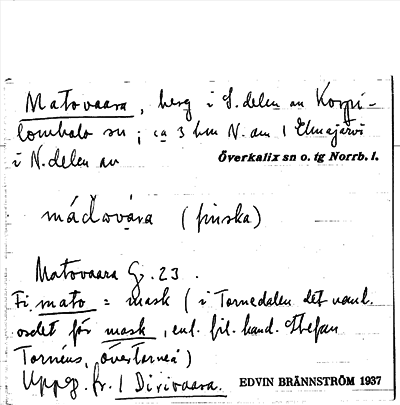 Matovaara, berg i S. delen av Korpi-
lombolo sn; ca 3 km N. om 1 Elmajärvi
i N. delen av Överkalix sn o. tg Norrb. l.
máđovára (finska)
Matovaara Gr. 23.
Fi. mato = mask (i Tornedalen det vanl.
ordet för mask, enl. fil. kand. Stefan
Tornéus, Övertorneå)
Uppg. fr. 1 Dirivaara. EDVIN BRÄNNSTRÖM 1937